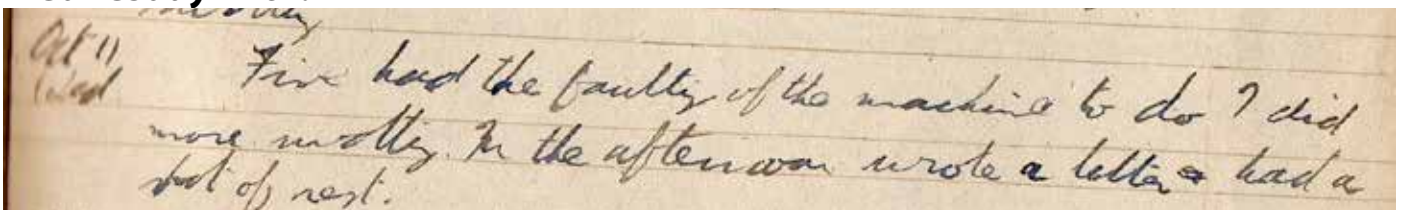 Oct 11
Wed
Five had the faulty of the machine to do I did
more swotting. In the afternoon wrote a letter & had a
of rest.